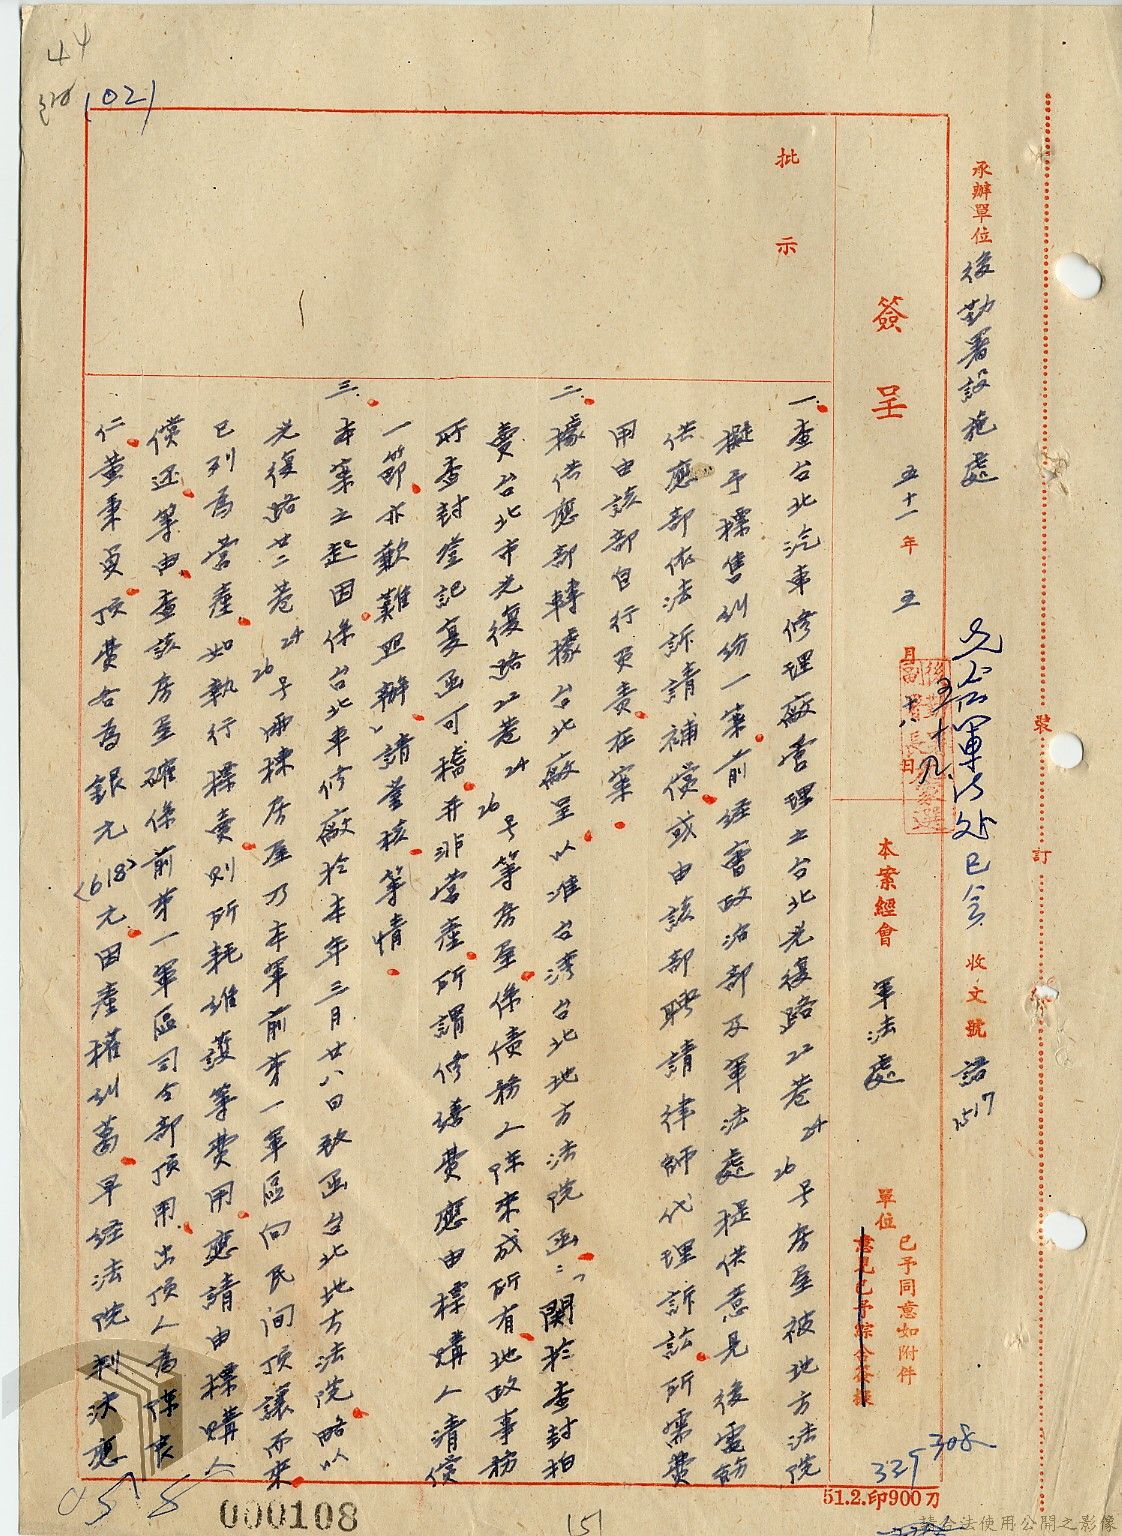 44
(02)
裝
訂
線
承辦單位 後勤署設施處
先會軍法處已会 收文號 諮2517
簽呈 五十一年 五月十八日
五十九
本案經會 軍法處 單位 已予同意如附件
意見已予綜合簽核
批示
一、查台北汽車修理廠管理之台北光復路22巷24 26号房屋被地方法院
擬予標售糾紛一案前經會政治部及軍法處提供意見後電飭
供應部依法訴請補償或由該部聘請律師代理訴訟所需費
用由該部自行負責在案
二、據供應部轉據台北廠呈以准台灣台北地方法院函：「関於查封拍
賣台北市光復路22巷24 26号等房屋係債務人陳來成所有地政事務
所查封登記复函可稽并非営產所謂修繕費應由標購人清償
一節亦歉難照辦」請鉴核等情
三、本案之起因係台北車修廠於本年三月廿八日致函台北地方法院略以
光復路廿二巷24 26号兩棟房屋乃本軍前第一軍區向民間頂讓而來
已列為営產如執行標賣則所耗維護等費用應請由標購人
償还等由查該房屋確係前第一軍區司令部頂用出頂人為陳良
仁黄秉貞頂費各為銀元〈618〉元因產權糾葛早经法院判決應
329
308
000108
51.2.印900刀
151
請合法使用公開之影像